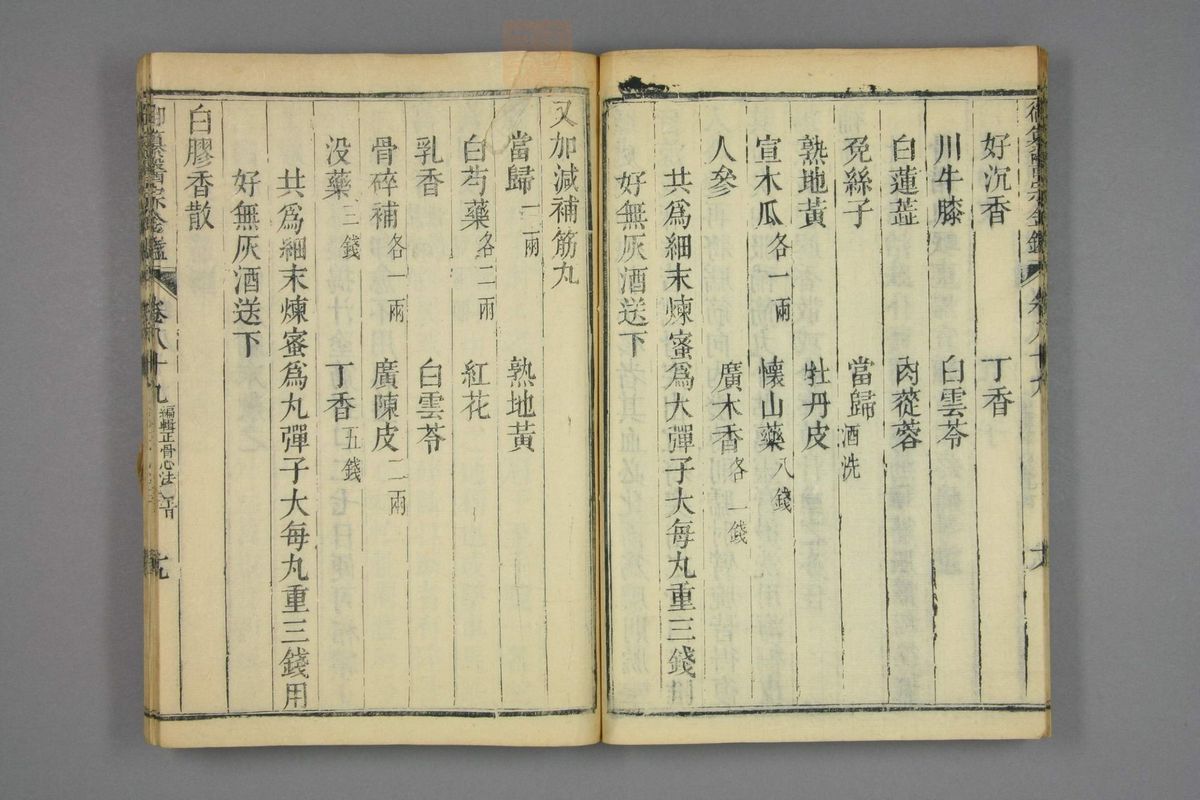 好沉香 丁香
川牛膝 白雲苓
白蓮蕋 肉蓯蓉
兔絲子 當歸酒洗
熟地黃 牡丹皮
宣木瓜各一兩 懷山藥八錢
人參 廣木香各一錢
共爲細末煉蜜爲丸彈子大每丸重三錢用
好無灰酒送下
又加減補筋丸
當歸一兩 熟地黃
白芍藥各二兩 紅花
乳香 白雲苓
骨碎補各一兩 廣陳皮二兩
没藥三錢 丁香五錢
共爲細末煉蜜爲丸彈子大每丸重三錢用
好無灰酒送下
白膠香散
御纂醫宗金鑑 卷八十九 編輯正骨心法